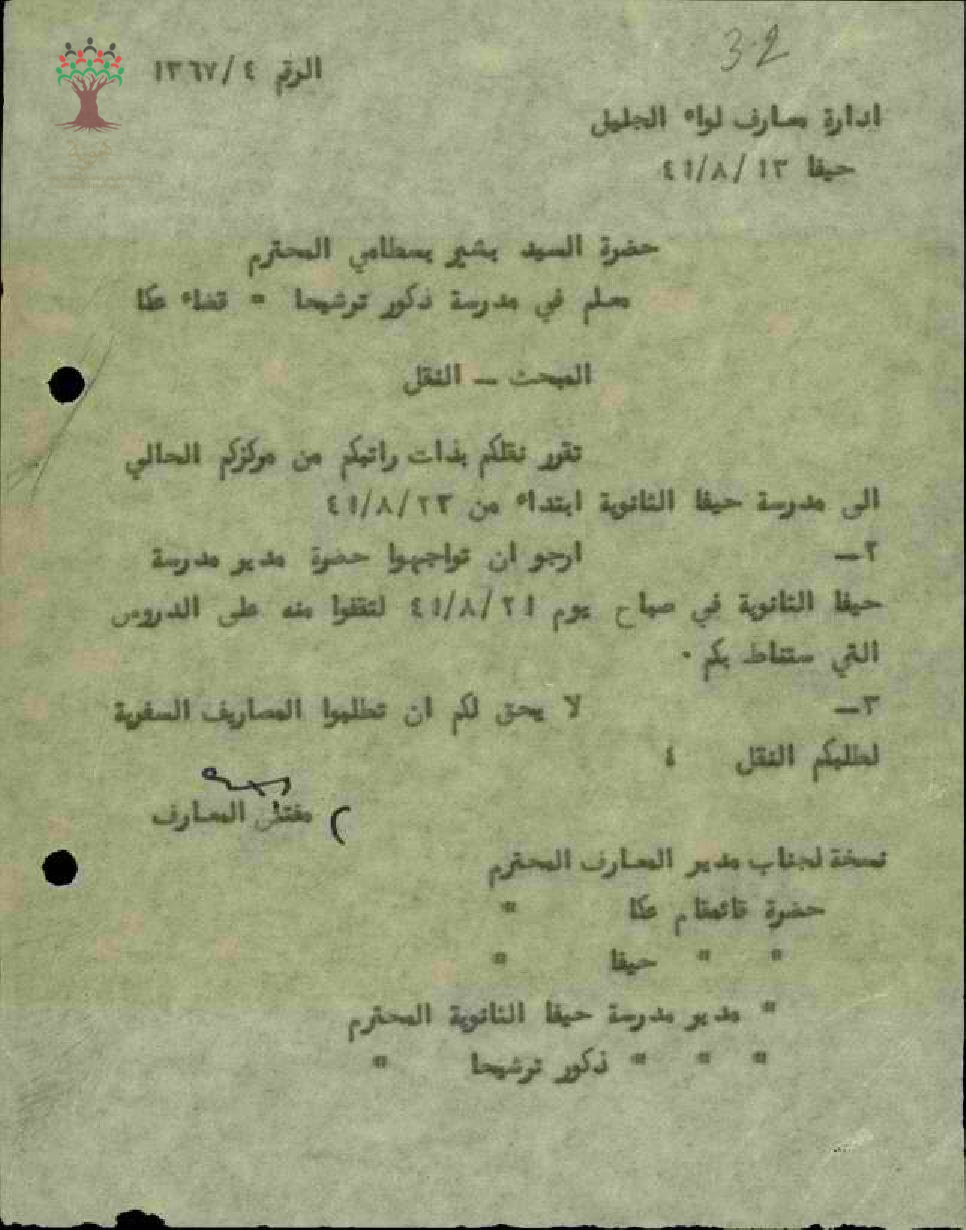 3-2
الرقم ١٣٦٧/٤
ادارة معارف لواء الجليل
حيفا ٤١/٨/١٣
حضرة السيد بشير بسطامي المحترم
معلم في مدرسة ذكور ترشيحا " قضاء عكا
المبحث — النقل
تقرر نقلكم بذات راتبكم من مركزكم الحالي
الى مدرسة حيفا الثانوية ابتداء من ٤١/٨/٢٣
٢— ارجو ان تواجهوا حضرة مدير مدرسة
حيفا الثانوية في صباح يوم ٤١/٨/٢١ لتقفوا منه على الدروس
التي ستناط بكم ٠
٣— لا يحق لكم ان تطلبوا المصاريف السفرية
لطلبكم النقل ٤
مفتش المعارف
نسخة لجناب مدير المعارف المحترم
حضرة قائمقام عكا "
" " حيفا "
" مدير مدرسة حيفا الثانوية المحترم
" " " ذكور ترشيحا "